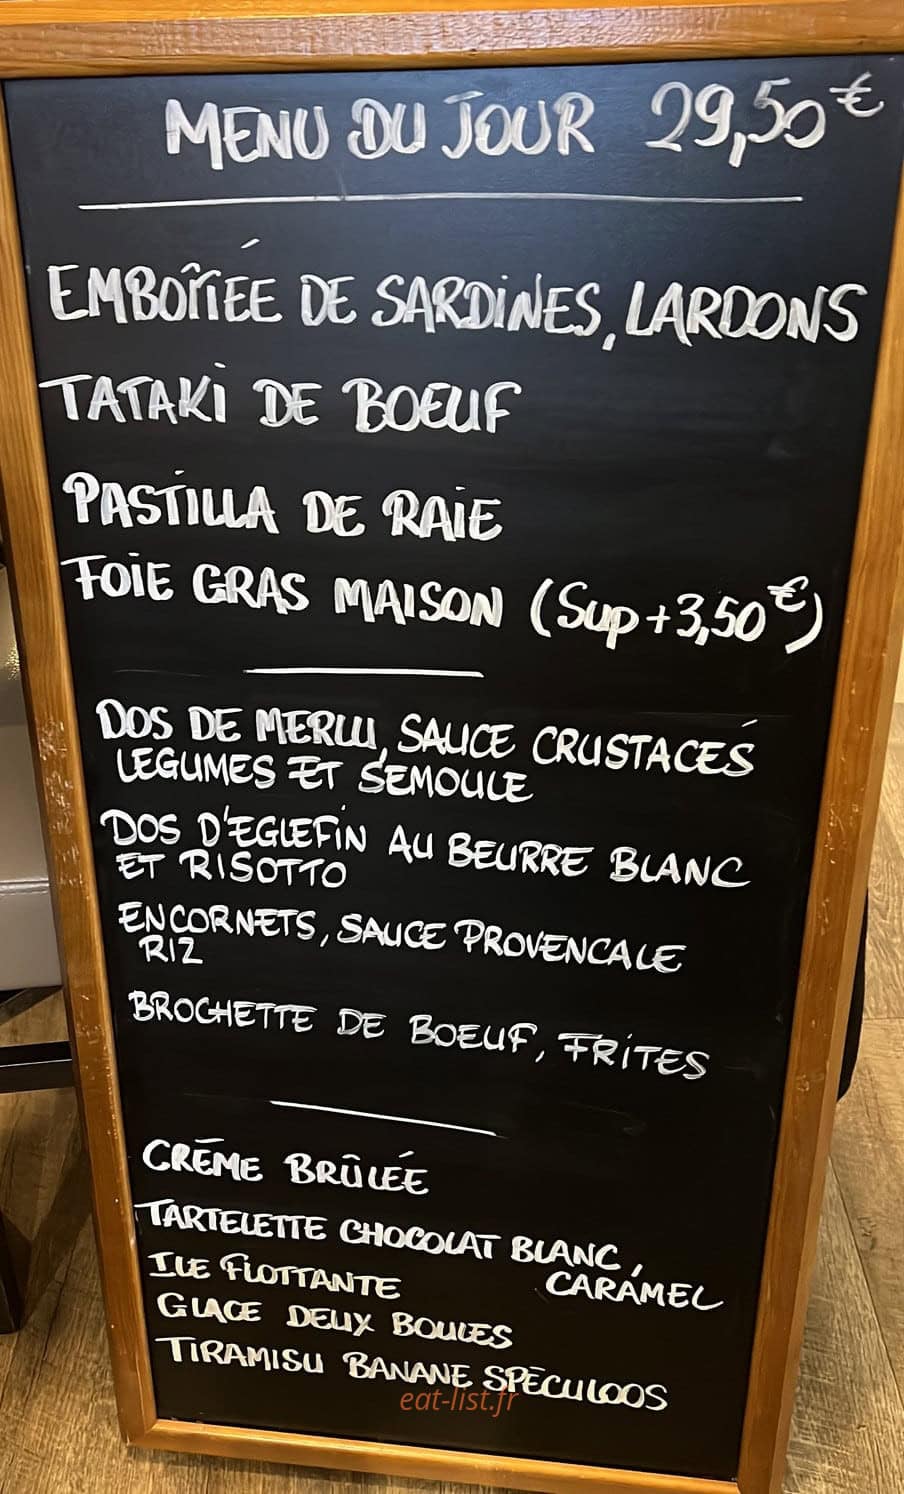 MENU DU JOUR 29,50€
EMBOÎTÉE DE SARDINES, LARDONS
TATAKI DE BOEUF
PASTILLA DE RAIE
FOIE GRAS MAISON (Sup+3,50€)
DOS DE MERLU, SAUCE CRUSTACÉS
LEGUMES ET SEMOULE
DOS D'EGLEFIN AU BEURRE BLANC
ET RISOTTO
ENCORNETS, SAUCE PROVENCALE
RIZ
BROCHETTE DE BOEUF, FRITES
CRĒME BRÛLÉE
TARTELETTE CHOCOLAT BLANC,
CARAMEL
ILE FLOTTANTE
GLACE DEUX BOULES
TIRAMISU BANANE SPĒCULOOS
eat-list.fr